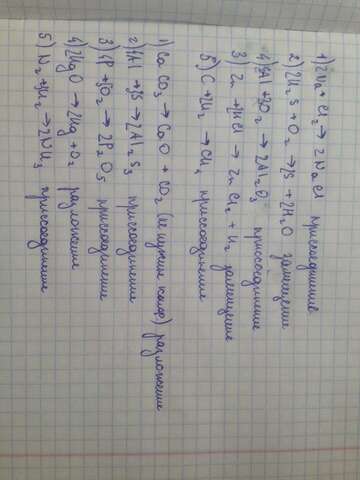 1) 2Na + Cl₂ → 2NaCl присоединение
2) 2H₂S + O₂ → 2S + 2H₂O замещение
4) 4Al + 3O₂ → 2Al₂O₃ приссоединение
3) Zn + 2HCl → ZnCl₂ + H₂ замещение
5) C + 2H₂ → CH₄ приссоединение
1) CaCO₃ → CaO + CO₂ (не нужен коэф) разложение
2) 4Al + 3S → 2Al₂S₃ присоединение
3) 4P + 5O₂ → 2P₂O₅ присоединение
4) 2HgO → 2Hg + O₂ разложение
5) N₂ + 3H₂ → 2NH₃ присоединение